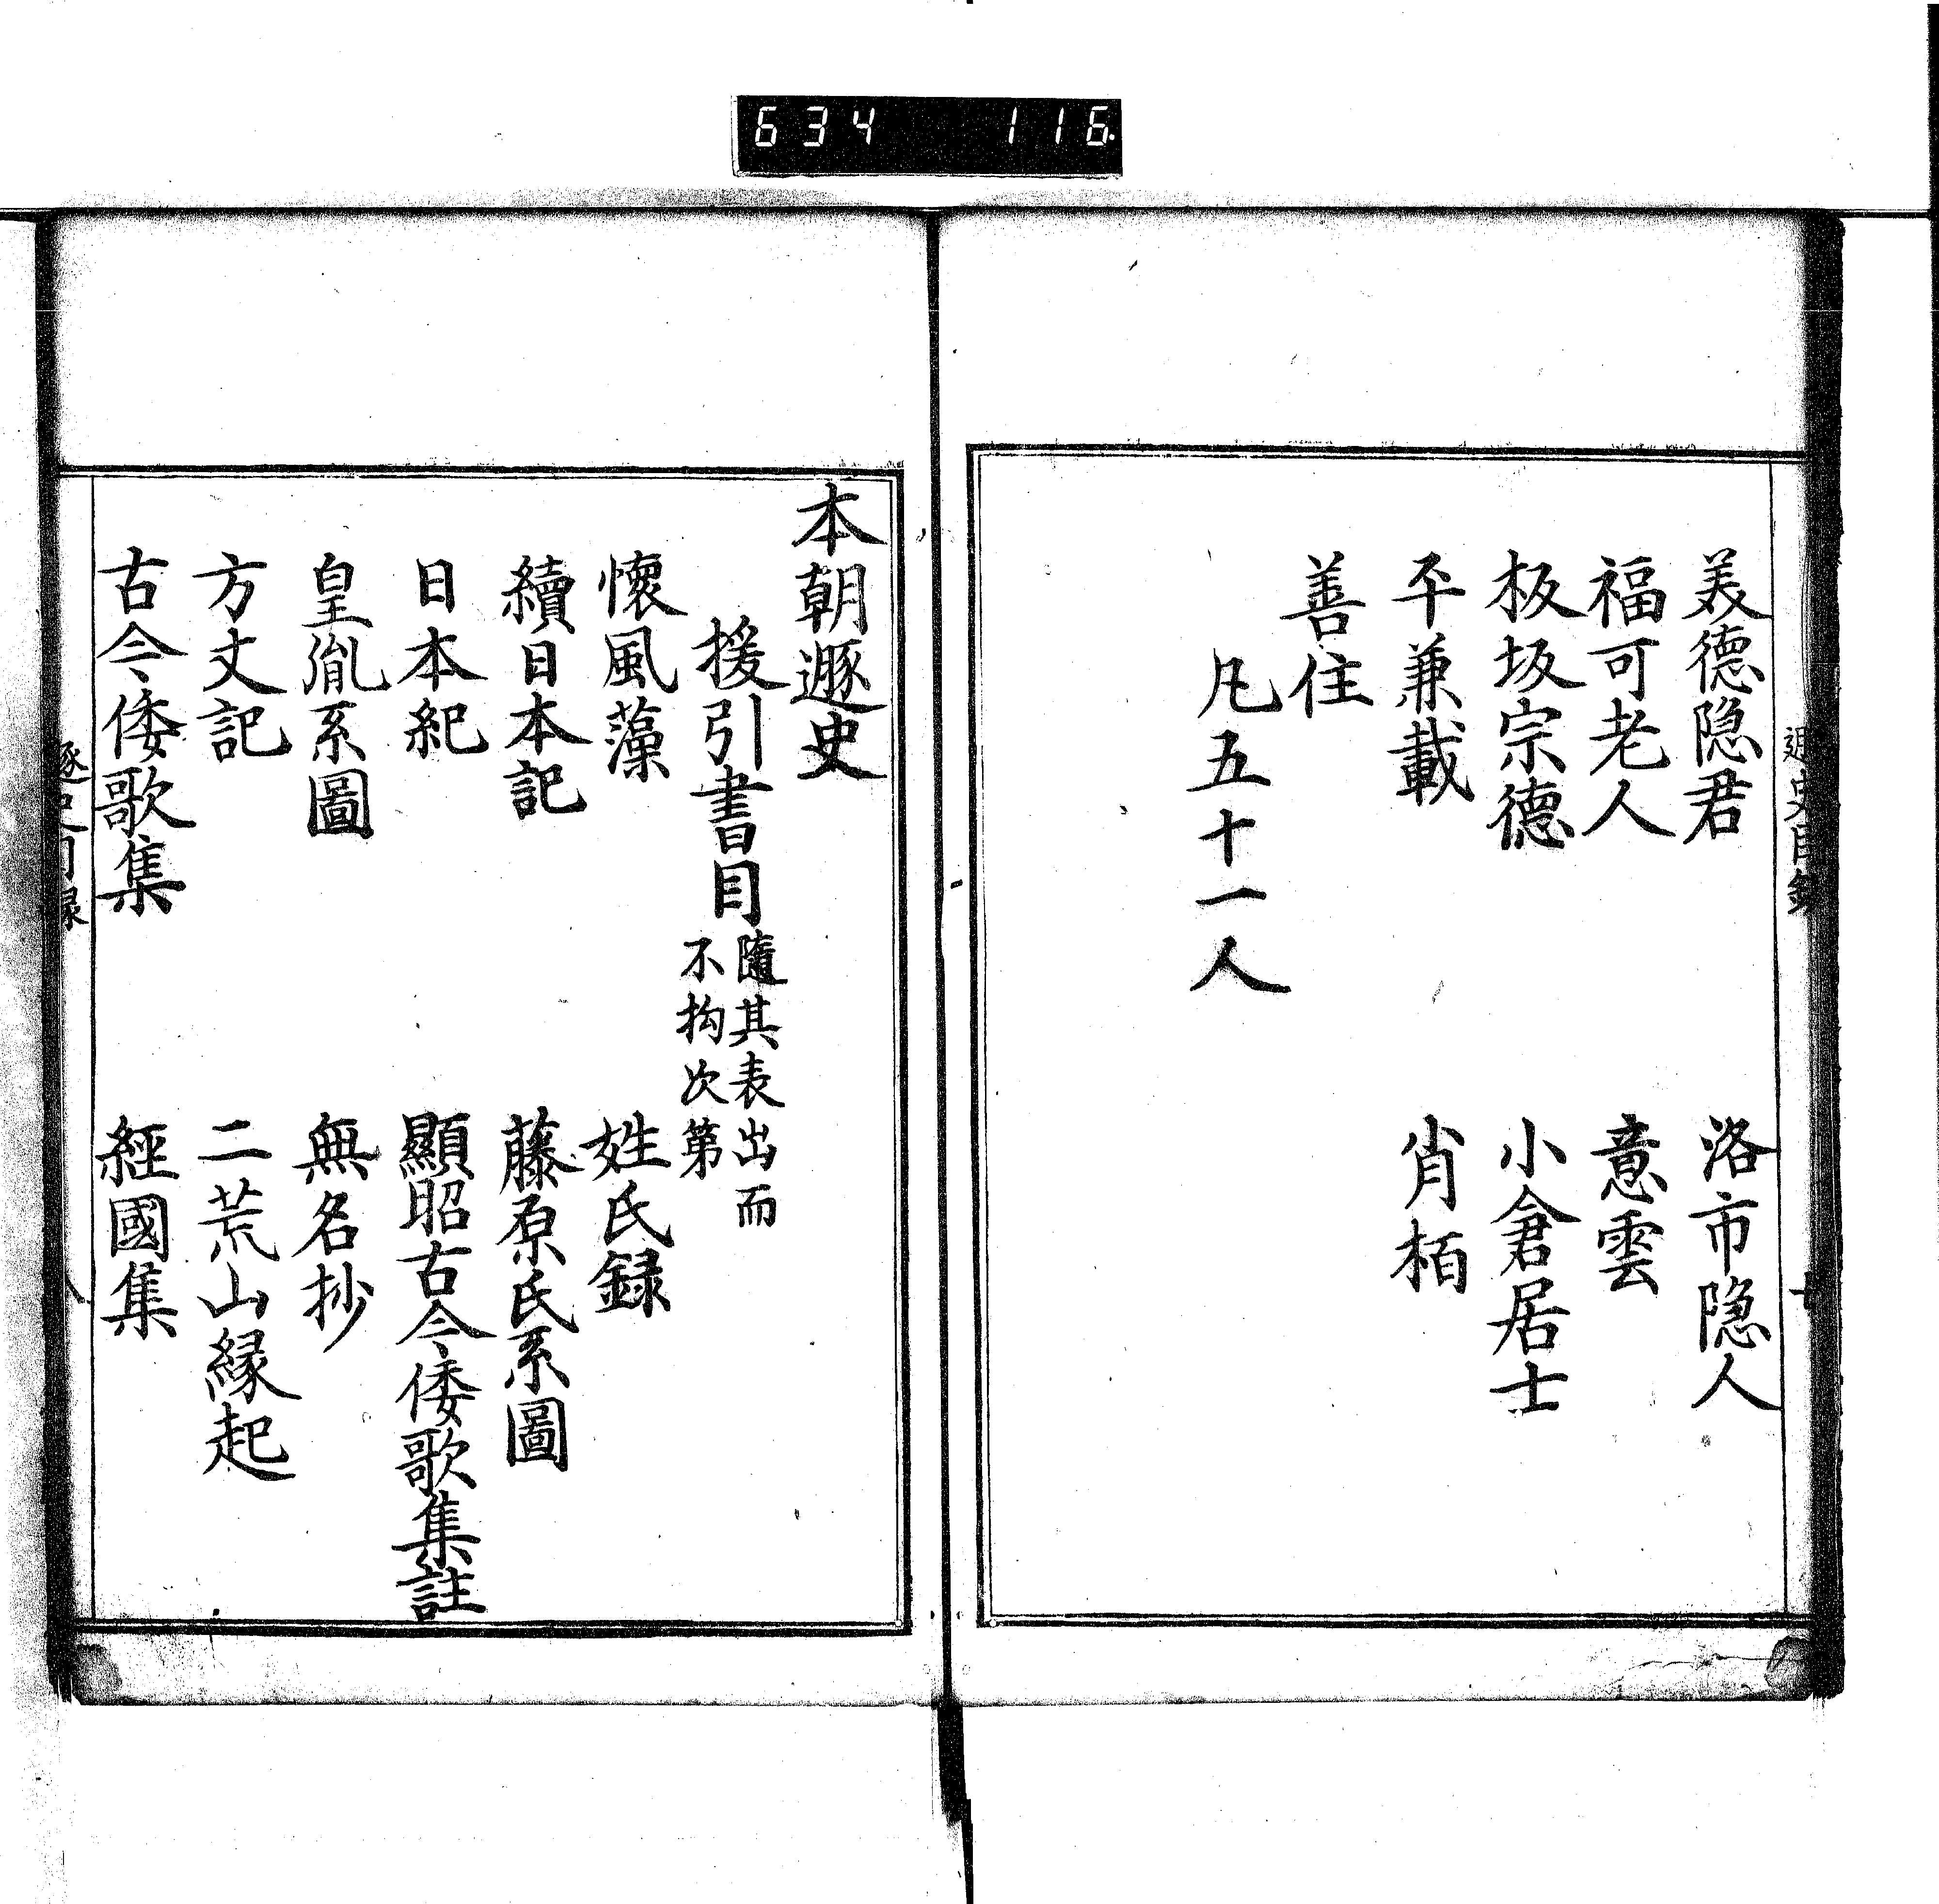 634 116
美德隐君 洛市隐人
福可老人 意雲
板坂宗德 小倉居士
平兼載 肖栢
善住
凡五十一人
本朝遯史
援引書目 隨其表出而
不拘次第
懷風藻 姓氏録
續日本記 藤原氏系圖
日本紀 顯昭古今倭歌集註
皇胤系圖 無名抄
方丈記 二荒山縁起
古今倭歌集 經國集